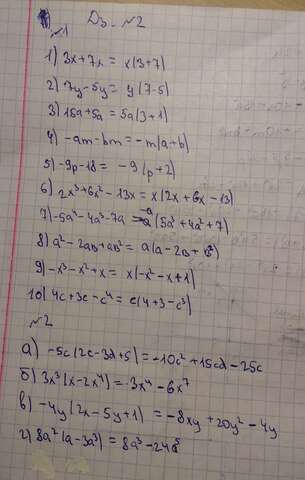 Дз - №2
№1
1) 3x+7x = x(3+7)
2) 7y-5y = y(7-5)
3) 15a+5a = 5a(3+1)
4) -am-bm = -m(a+b)
5) -9p-18 = -9(p+2)
6) 2x³+6x²-13x = x(2x+6x-13)
7) -5a²-4a³-7a = -a(5a³+4a²+7)
8) a²-2ab+ab² = a(a-2b+b²)
9) -x³-x²+x = x(-x²-x+1)
10) 4c+3c-c⁴ = c(4+3-c³)
№2
а) -5c(2c-3d+5) = -10c²+15cd-25c
б) 3x³(x-2x⁴) = 3x⁴-6x⁷
в) -4y(2x-5y+1) = -8xy+20y²-4y
г) 8a²(a-3a³) = 8a³-24a⁵